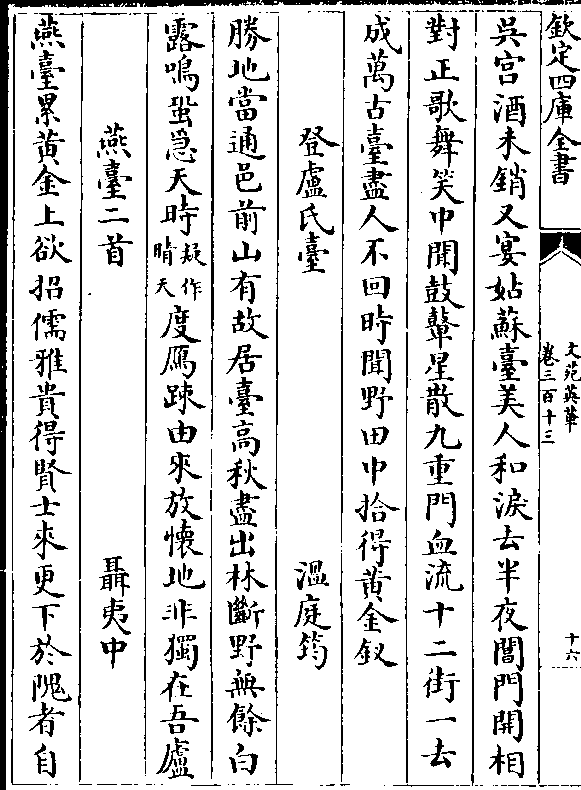 欽定四庫全書
文苑英華
卷三百十三
十六
吳宫酒未銷又宴姑蘇臺美人和淚去半夜閶門開相
對正歌舞笑中聞鼓鼙星散九重門血流十二街一去
成萬古臺盡人不回時聞野田中拾得黄金釵
登盧氏臺 溫庭筠
勝地當通邑前山有故居臺高秋盡出林斷野無餘白
露鳴蛩急天時疑作晴天度鴈踈由來放懷地非獨在吾廬
燕臺二首 聶夷中
燕臺累黄金上欲招儒雅貴得賢士來更下於隗者自